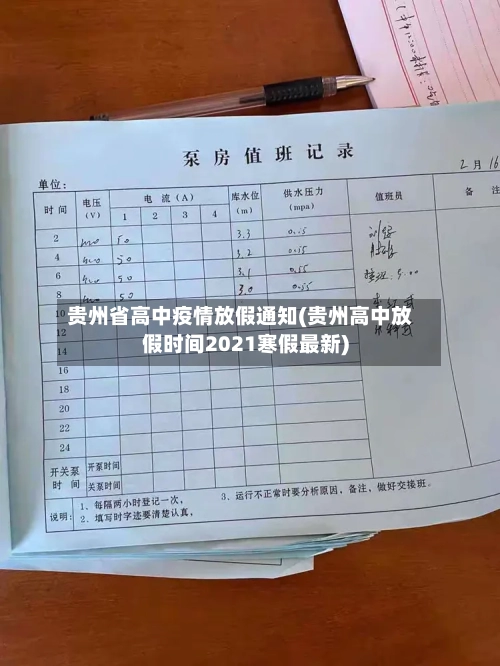 泵房值班记录
2月16
单位：
时间 电压(V) 电流(A) 库水位(m) 供水压力(mpa) 值班员 备注
1 2 3 4
2 50 3.3 0.55
4 400 50 3.2 0.55
6 400 50 3.1 0.55
8 50 3.0 0.55
贵州省高中疫情放假通知(贵州高中放
假时间2021寒假最新)
10
12
14
16
18
20
22
24
开关泵时间 开泵时间
关泵时间
说明：1、每隔两小时登记一次，
2、填写时字迹要清楚认真，
3、运行不正常时要分析原因、备注，做好交接班。